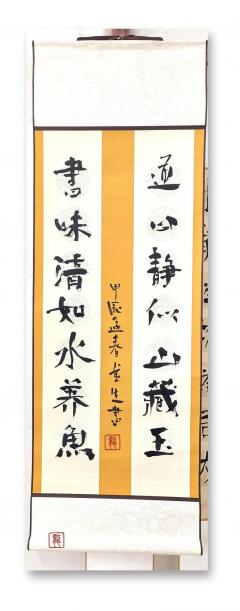 道心静似山藏玉
書味清如水养魚
甲辰孟春金生書